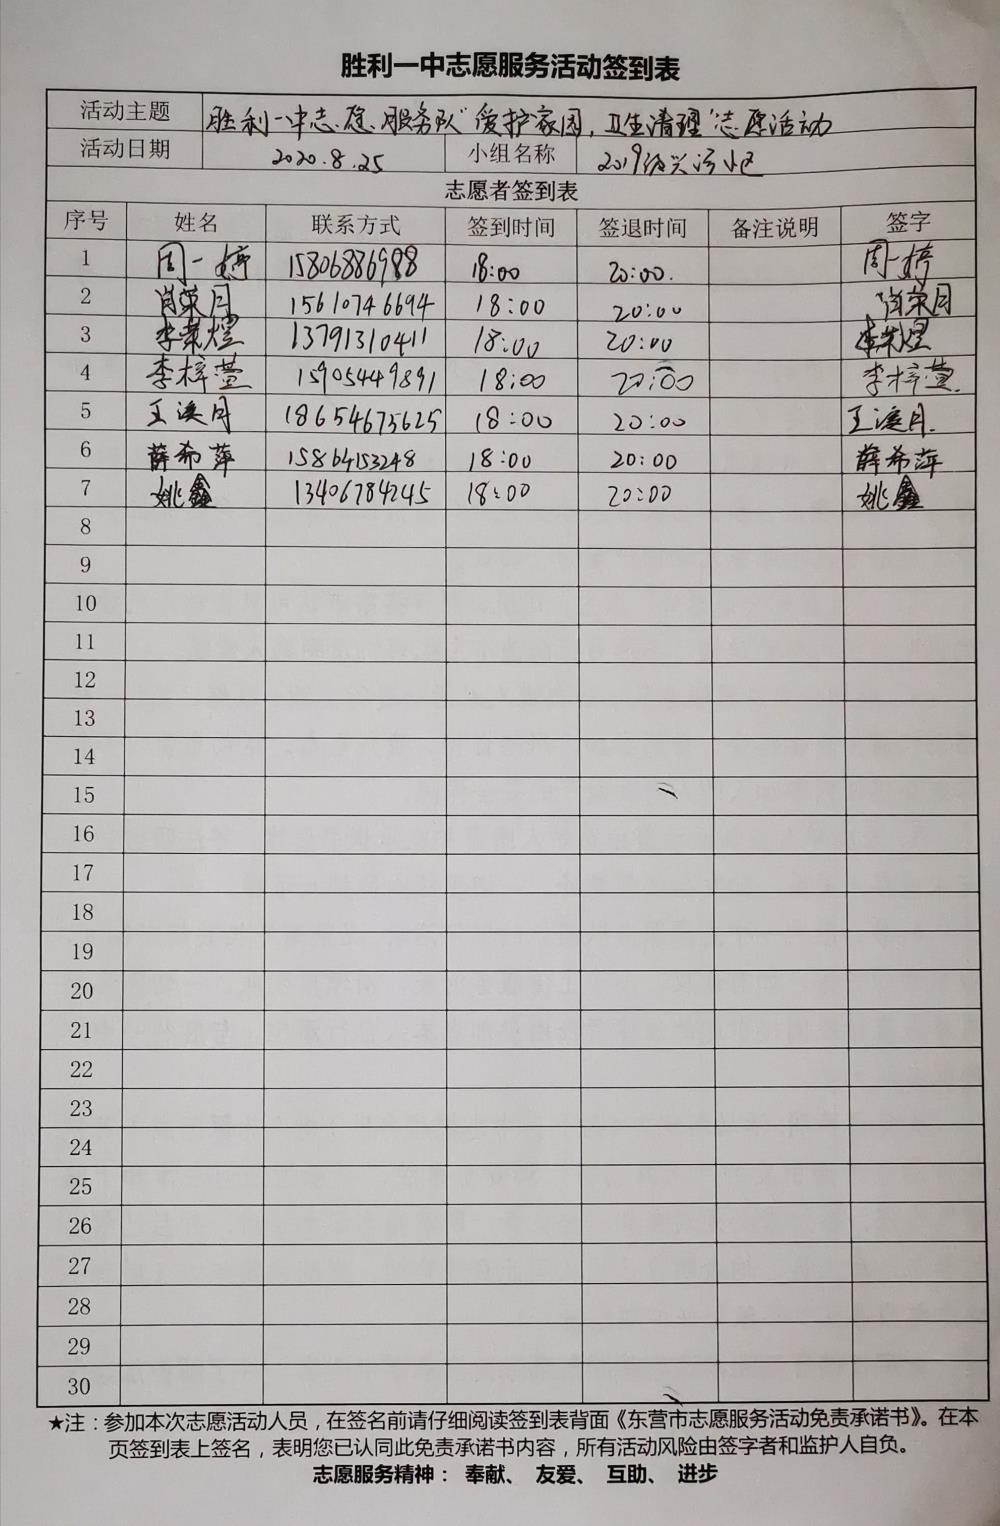 胜利一中志愿服务活动签到表
活动主题 胜利一中志愿服务队"爱护家园，卫生清理"志愿活动
活动日期 2020.8.25 小组名称 2019级兴河小区
志愿者签到表
序号 姓名 联系方式 签到时间 签退时间 备注说明 签字
1 周一婷 15806886988 18:00 20:00. 周一婷
2 肖荣月 15610746694 18:00 20:00 肖荣月
3 李荣煜 13791310411 18:00 20:00 李荣煜
4 李梓萱 15905449891 18:00 20:00 李梓萱.
5 王溪月 18654675625 18:00 20:00 王溪月.
6 薛希萍 15864153248 18:00 20:00 薛希萍
7 姚鑫 13406784245 18:00 20:00 姚鑫
8
9
10
11
12
13
14
15
16
17
18
19
20
21
22
23
24
25
26
27
28
29
30
★注：参加本次志愿活动人员，在签名前请仔细阅读签到表背面《东营市志愿服务活动免责承诺书》。在本
页签到表上签名，表明您已认同此免责承诺书内容，所有活动风险由签字者和监护人自负。
志愿服务精神： 奉献、 友爱、 互助、 进步